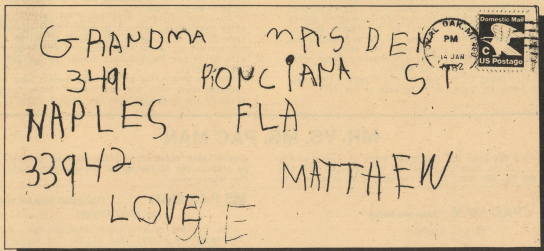 GRANDMA MRS DEN
3491 PONCIANA ST
NAPLES FLA
33942
MATTHEW
LOVE
OAK, MI
PM
14 JAN
Domestic Mail
C
US Postage